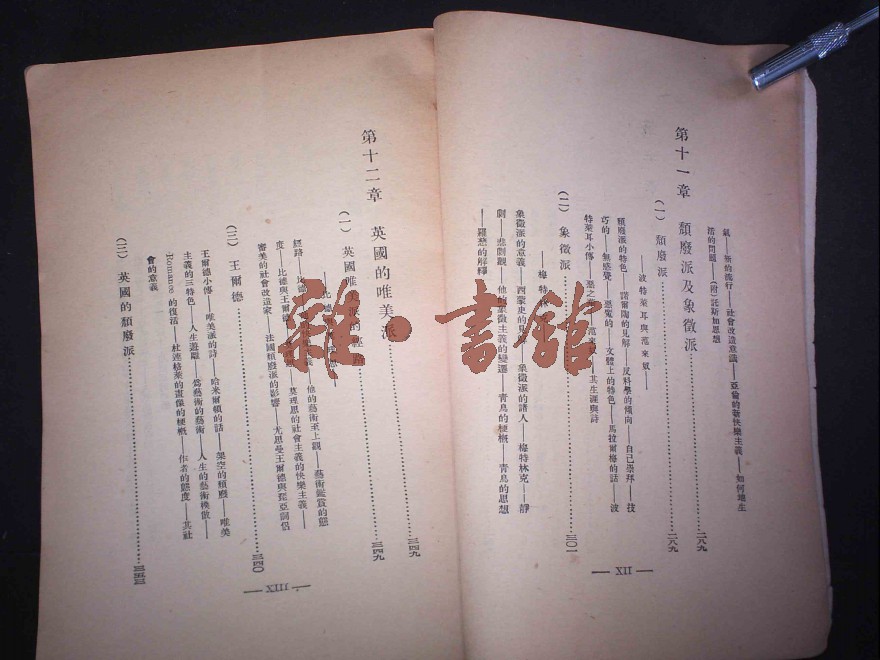 氣——新的流行——社會改造意識——亞倫的新快樂主義——如何地生
活的問題——(附)託斯加思想
第十一章　頽廢派及象徵派……二八九
(一)　頽廢派……二八九
——波特萊耳與范來哀——
頽廢派的特色——諾爾陶的見解——反科學的傾向——自己崇拜——技
巧的——無感覺——惡魔的——文體上的特色——馬拉爾梅的話——波
特萊耳小傳——惡之——范來——其生涯與詩
(二)　象徵派……三〇一
——梅特
象徵派的意義——西蒙史的見——象徵派的諸人——梅特林克——靜
劇——悲劇觀——他的象徵主義的變遷——青鳥的梗概——青鳥的思想
——羅瑟的解釋
— XII —
第十二章　英國的唯美派……三四九
(一)　英國唯美派的……三四九
經路——比德——主義——他的藝術至上觀——藝術鑑賞的態
度——比德與王爾德——莫理思的社會主義的快樂主義——
審美的社會改造家——法國頽廢派的影響——尤思曼王爾德與
(二)　王爾德……三四〇
王爾德小傳——唯美派的詩——哈米爾頓的話——架空的頽廢——唯美
主義的三特色——人生遊離——爲藝術的藝術——人生的藝術模倣——
Romance 的復活——杜連格萊的畫像的梗概——作者的態度——其社
會的意義
(三)　英國的頽廢派……三五三
— XIII —
雜·書館